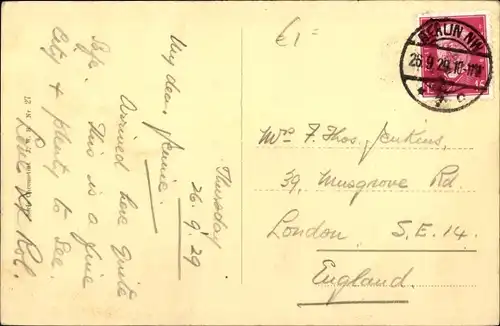 Thursday
26.9.29
My dear Jennie.
Arrived here quite
Safe. This is a fine
City & plenty to See.
Love XX Rob.
£1=
BERLIN NW
26.9.29.10-11V
* 7 c
15
Mrs F. Thos. Jenkins,
39, Musgrove Rd
London S.E.14.
England.